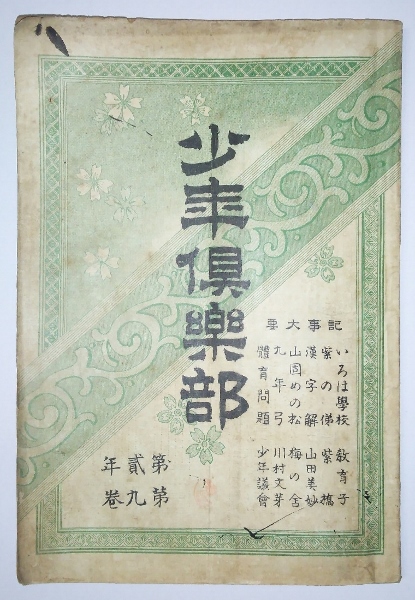 少年倶樂部
記事大要
いろは學校 教育子
紫の俤 紫橋
漢字解 山田美妙
山固めの松 梅の舍
九年弓 川村文芽
體育問題 少年議會
第貳年
第九卷